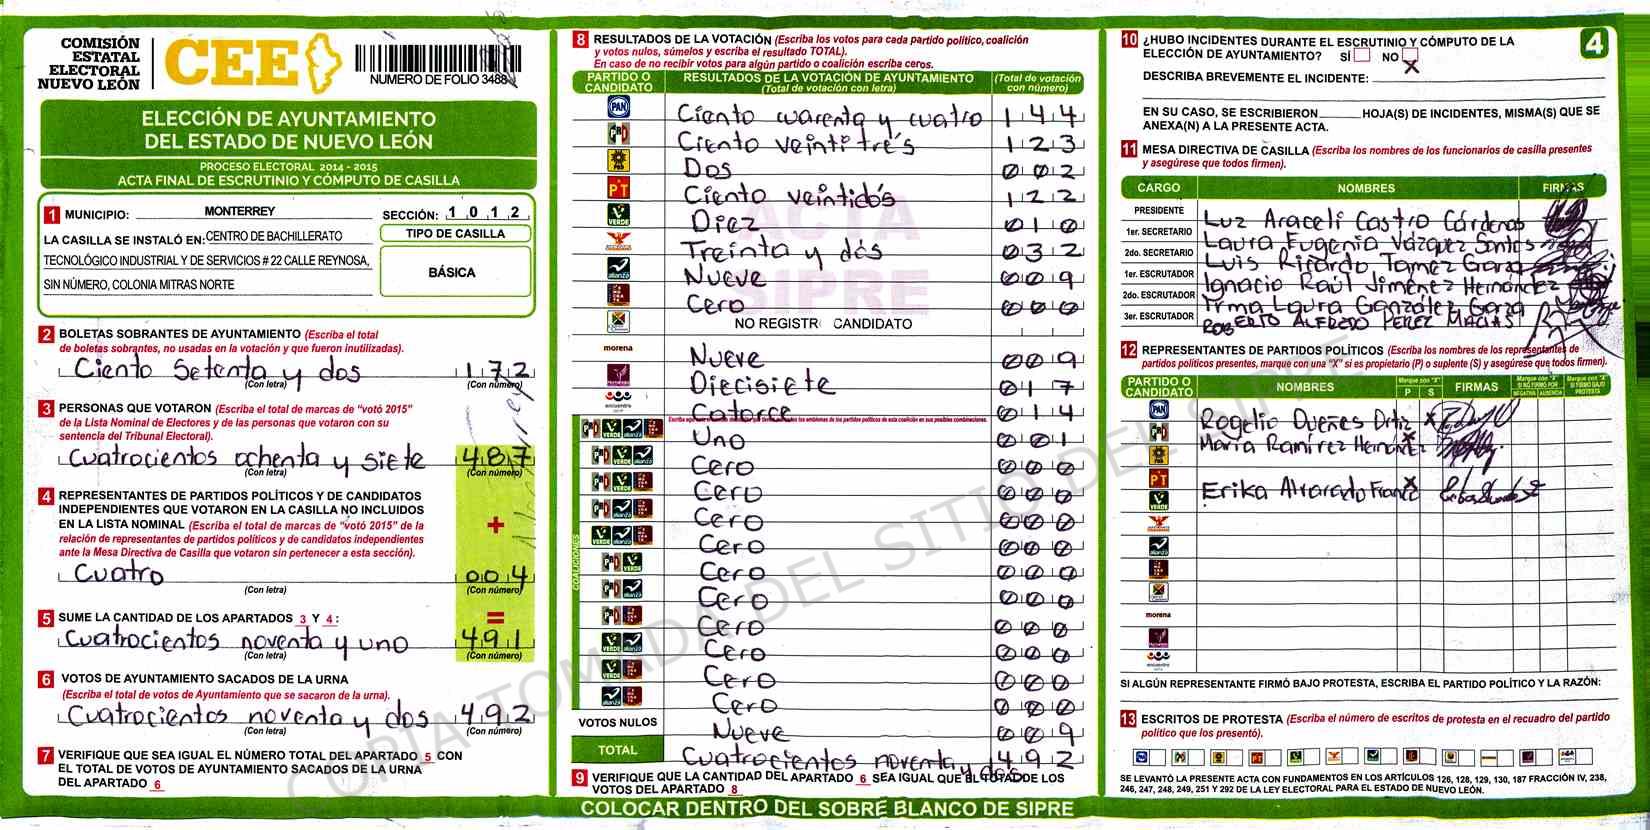 COMISIÓN
ESTATAL
ELECTORAL
NUEVO LEÓN
CEE
NUMERO DE FOLIO 3488
ELECCIÓN DE AYUNTAMIENTO
DEL ESTADO DE NUEVO LEÓN
PROCESO ELECTORAL 2014 - 2015
ACTA FINAL DE ESCRUTINIO Y CÓMPUTO DE CASILLA
1 MUNICIPIO: MONTERREY SECCIÓN: 1 0 1 2
LA CASILLA SE INSTALÓ EN: CENTRO DE BACHILLERATO
TECNOLÓGICO INDUSTRIAL Y DE SERVICIOS # 22 CALLE REYNOSA,
SIN NÚMERO, COLONIA MITRAS NORTE
TIPO DE CASILLA
BÁSICA
2 BOLETAS SOBRANTES DE AYUNTAMIENTO (Escriba el total
de boletas sobrantes, no usadas en la votación y que fueron inutilizadas).
Ciento Setenta y dos 172
(Con letra) (Con número)
3 PERSONAS QUE VOTARON (Escriba el total de marcas de "votó 2015"
de la Lista Nominal de Electores y de las personas que votaron con su
sentencia del Tribunal Electoral).
Cuatrocientos ochenta y siete 487
(Con letra) (Con número)
4 REPRESENTANTES DE PARTIDOS POLÍTICOS Y DE CANDIDATOS
INDEPENDIENTES QUE VOTARON EN LA CASILLA NO INCLUIDOS
EN LA LISTA NOMINAL (Escriba el total de marcas de "votó 2015" de la
relación de representantes de partidos políticos y de candidatos independientes
ante la Mesa Directiva de Casilla que votaron sin pertenecer a esta sección).
+
Cuatro 004
(Con letra) (Con número)
=
5 SUME LA CANTIDAD DE LOS APARTADOS 3 Y 4:
Cuatrocientos noventa y uno 491
(Con letra) (Con número)
6 VOTOS DE AYUNTAMIENTO SACADOS DE LA URNA
(Escriba el total de votos de Ayuntamiento que se sacaron de la urna).
Cuatrocientos noventa y dos 492
(Con letra) (Con número)
7 VERIFIQUE QUE SEA IGUAL EL NÚMERO TOTAL DEL APARTADO 5 CON
EL TOTAL DE VOTOS DE AYUNTAMIENTO SACADOS DE LA URNA
DEL APARTADO 6
8 RESULTADOS DE LA VOTACIÓN (Escriba los votos para cada partido político, coalición
y votos nulos, súmelos y escriba el resultado TOTAL).
En caso de no recibir votos para algún partido o coalición escriba ceros.
PARTIDO O CANDIDATO RESULTADOS DE LA VOTACIÓN DE AYUNTAMIENTO (Total de votación con letra) (Total de votación con número)
PAN Ciento cuarenta y cuatro 144
PRD Ciento veintitrés 123
Dos 002
PT Ciento veintidós 122
VERDE Diez 010
Treinta y dós 032
alianza Nueve 009
Cero 000
NO REGISTR CANDIDATO
morena Nueve 009
Diecisiete 017
encuentro Catorce 014
Uno 001
Cero 000
Cero 000
Cero 000
Cero 000
Cero 000
Cero 000
Cero 000
Cero 000
Cero 000
Cero 000
COALICIONES
VOTOS NULOS Nueve 009
TOTAL Cuatrocientos noventa y dos 492
9 VERIFIQUE QUE LA CANTIDAD DEL APARTADO 6 SEA IGUAL QUE EL TOTAL DE LOS
VOTOS DEL APARTADO 8
COLOCAR DENTRO DEL SOBRE BLANCO DE SIPRE
ACTA
SIPRE
COPIA TOMADA DEL SITIO DEL SIPRE
4
10 ¿HUBO INCIDENTES DURANTE EL ESCRUTINIO Y CÓMPUTO DE LA
ELECCIÓN DE AYUNTAMIENTO? SÍ NO X
DESCRIBA BREVEMENTE EL INCIDENTE:
EN SU CASO, SE ESCRIBIERON HOJA(S) DE INCIDENTES, MISMA(S) QUE SE
ANEXA(N) A LA PRESENTE ACTA.
11 MESA DIRECTIVA DE CASILLA (Escriba los nombres de los funcionarios de casilla presentes
y asegúrese que todos firmen).
CARGO NOMBRES FIRMAS
PRESIDENTE Luz Araceli Castro Cárdenas
1er. SECRETARIO Laura Eugenia Vázquez Santos
2do. SECRETARIO Luis Ricardo Tamez Garza
1er. ESCRUTADOR Ignacio Raúl Jiménez Hernández
2do. ESCRUTADOR Irma Laura González Garza
3er. ESCRUTADOR ROBERTO ALFREDO PEREZ MACIAS
12 REPRESENTANTES DE PARTIDOS POLÍTICOS (Escriba los nombres de los representantes de
partidos políticos presentes, marque con una "X" si es propietario (P) o suplente (S) y asegúrese que todos firmen).
PARTIDO O CANDIDATO NOMBRES P S FIRMAS
PAN Rogelio Dueñes Ortiz X
María Ramírez Hernández X
PT Erika Alvarado Franco X
VERDE
alianza
morena
encuentro
SI ALGÚN REPRESENTANTE FIRMÓ BAJO PROTESTA, ESCRIBA EL PARTIDO POLÍTICO Y LA RAZÓN:
13 ESCRITOS DE PROTESTA (Escriba el número de escritos de protesta en el recuadro del partido
político que los presentó).
SE LEVANTÓ LA PRESENTE ACTA CON FUNDAMENTOS EN LOS ARTÍCULOS 126, 128, 129, 130, 187 FRACCIÓN IV, 238,
246, 247, 248, 249, 251 Y 292 DE LA LEY ELECTORAL PARA EL ESTADO DE NUEVO LEÓN.